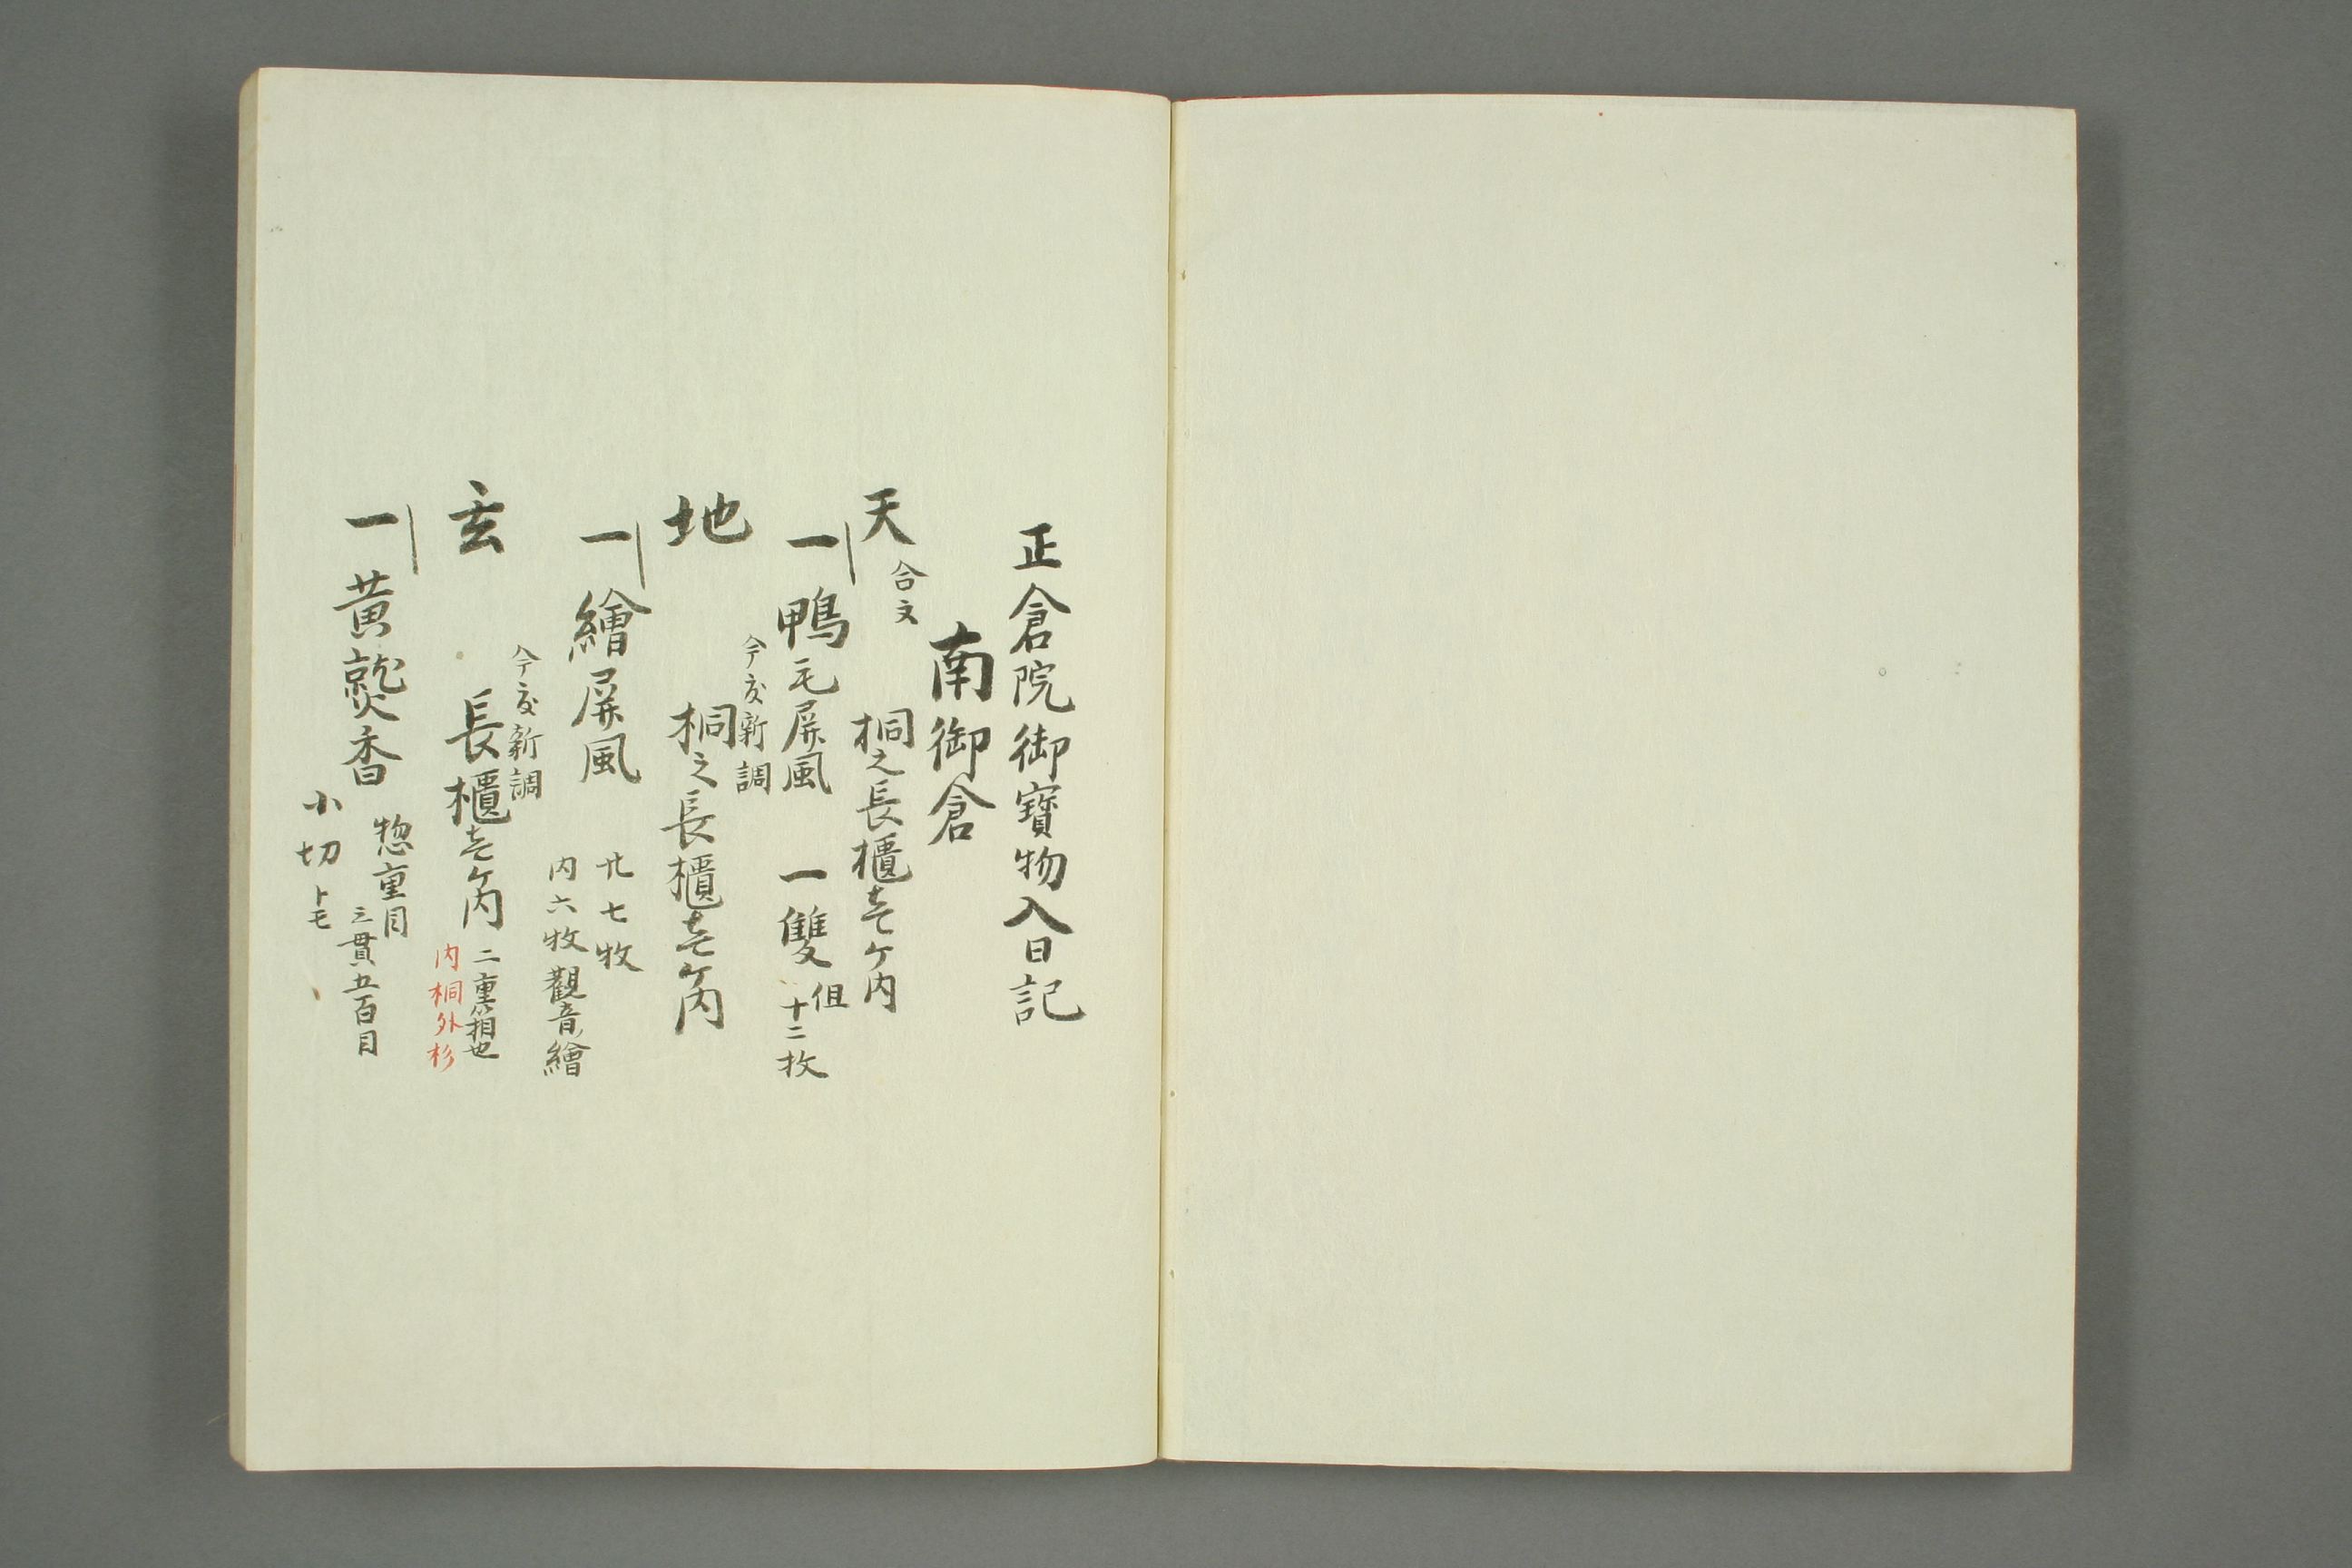 正倉院御寳物入日記
南御倉
天 合文 桐之長櫃壱ケ内
一 鴨毛屏風 一雙 但十二枚
地 今度新調 桐之長櫃壱ケ内
一 繪屏風 廿七牧
内六牧觀音繪
玄 今度新調 長櫃壱ケ内 二重箱也
内桐外杉
一 黄熟香 惣重目
三貫五百目
小切トモ